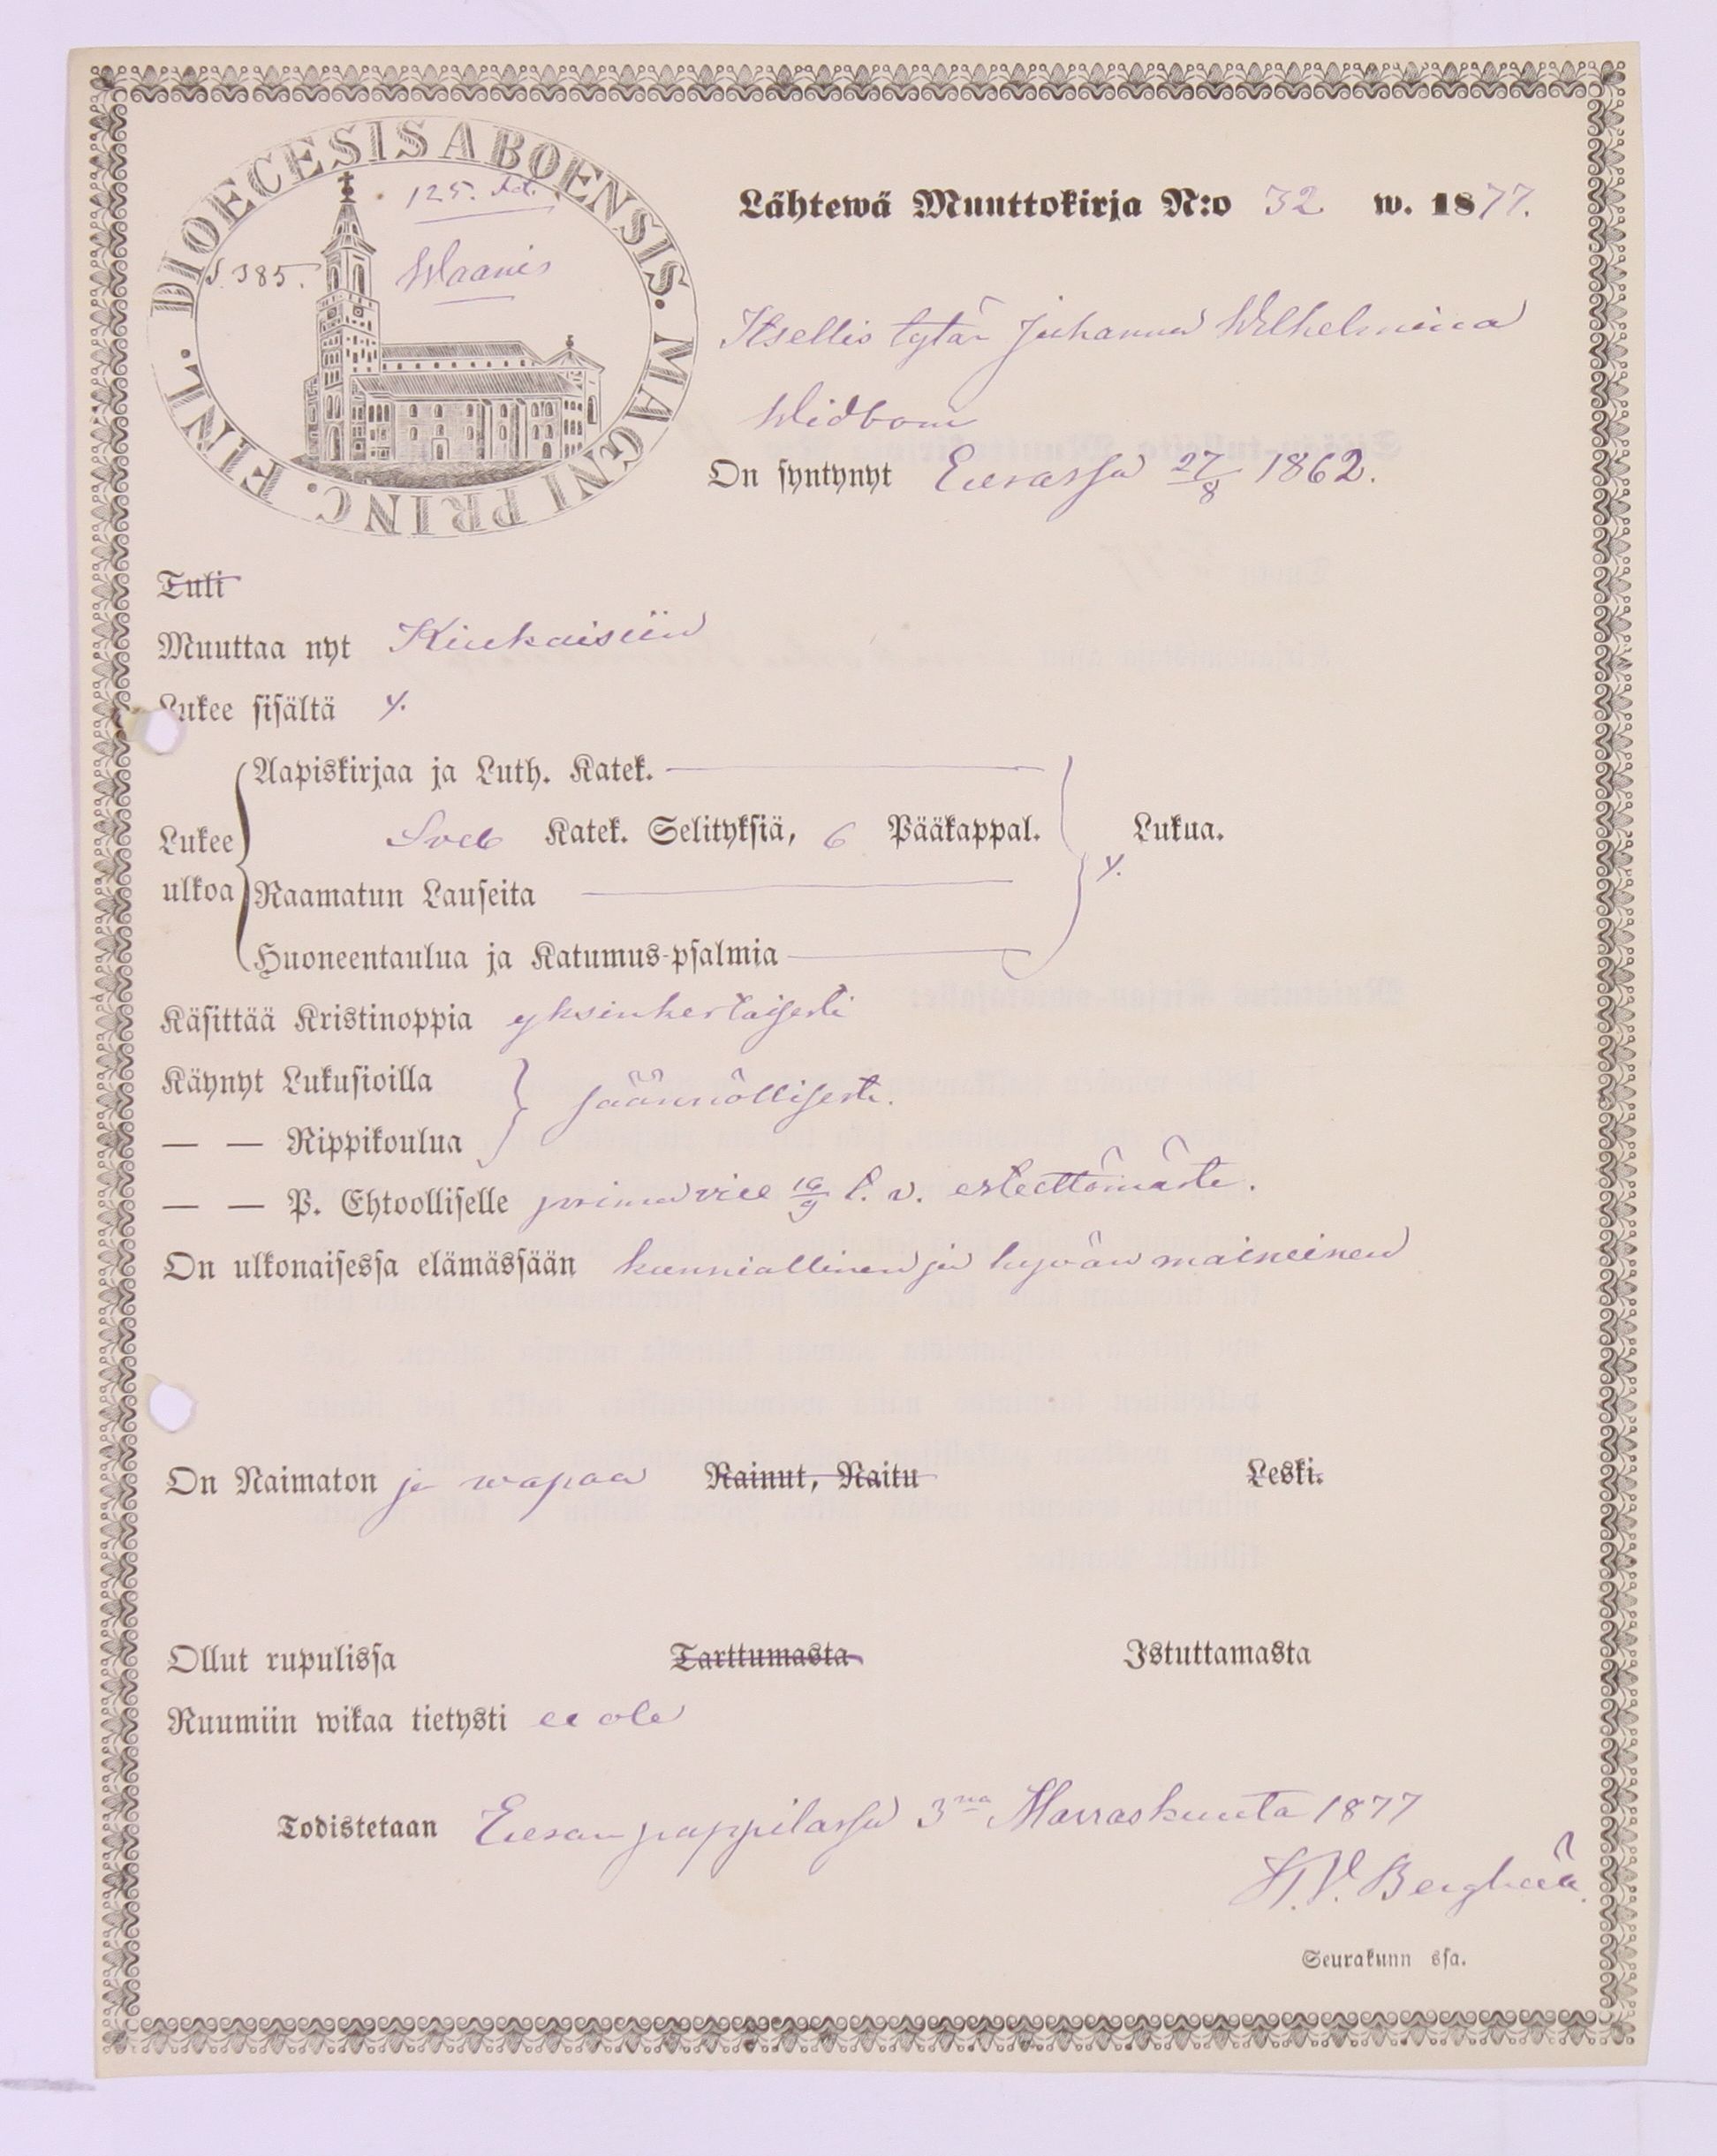 DIOECESIS ABOENSIS. MAGNI PRINC. FINL.
125.
S. 385. Waanis
Lähtewä Muuttokirja N:o 32 w. 1877.
Itsellis tytär Juhanna Wilhelmina
Widbom
On syntynyt Eurassa 27/8 1862.
Tuli
Muuttaa nyt Kiukaisiin
Lukee sisältä y.
Aapiskirjaa ja Luth. Katek.
Lukee Sveb Katek. Selityksiä, 6 Pääkappal. Lukua.
ulkoa Raamatun Lauseita y.
Huoneentaulua ja Katumus-psalmia
Käsittää Kristinoppia yksinkertaisesti
Käynyt Lukusioilla säännöllisesti.
— — Rippikoulua
— — P. Ehtoolliselle prima vice 16/9 t. v. esteettömästi.
On ulkonaisessa elämässään kunniallinen ja hyvän maineinen
On Naimaton ja wapaa Nainut, Naitu Leski.
Ollut rupulissa Tarttumasta Istuttamasta
Ruumiin wikaa tietysti ei ole
Todistetaan Euran pappilassa 3na Marraskuuta 1877
Seurakunn ssa.